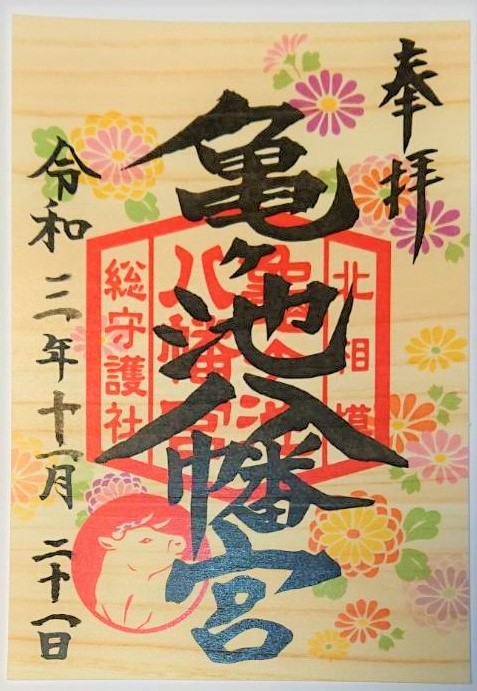 奉拝
亀ヶ池八幡宮
北相模
亀ヶ池
八幡宮
総守護社
令和三年十一月二十一日